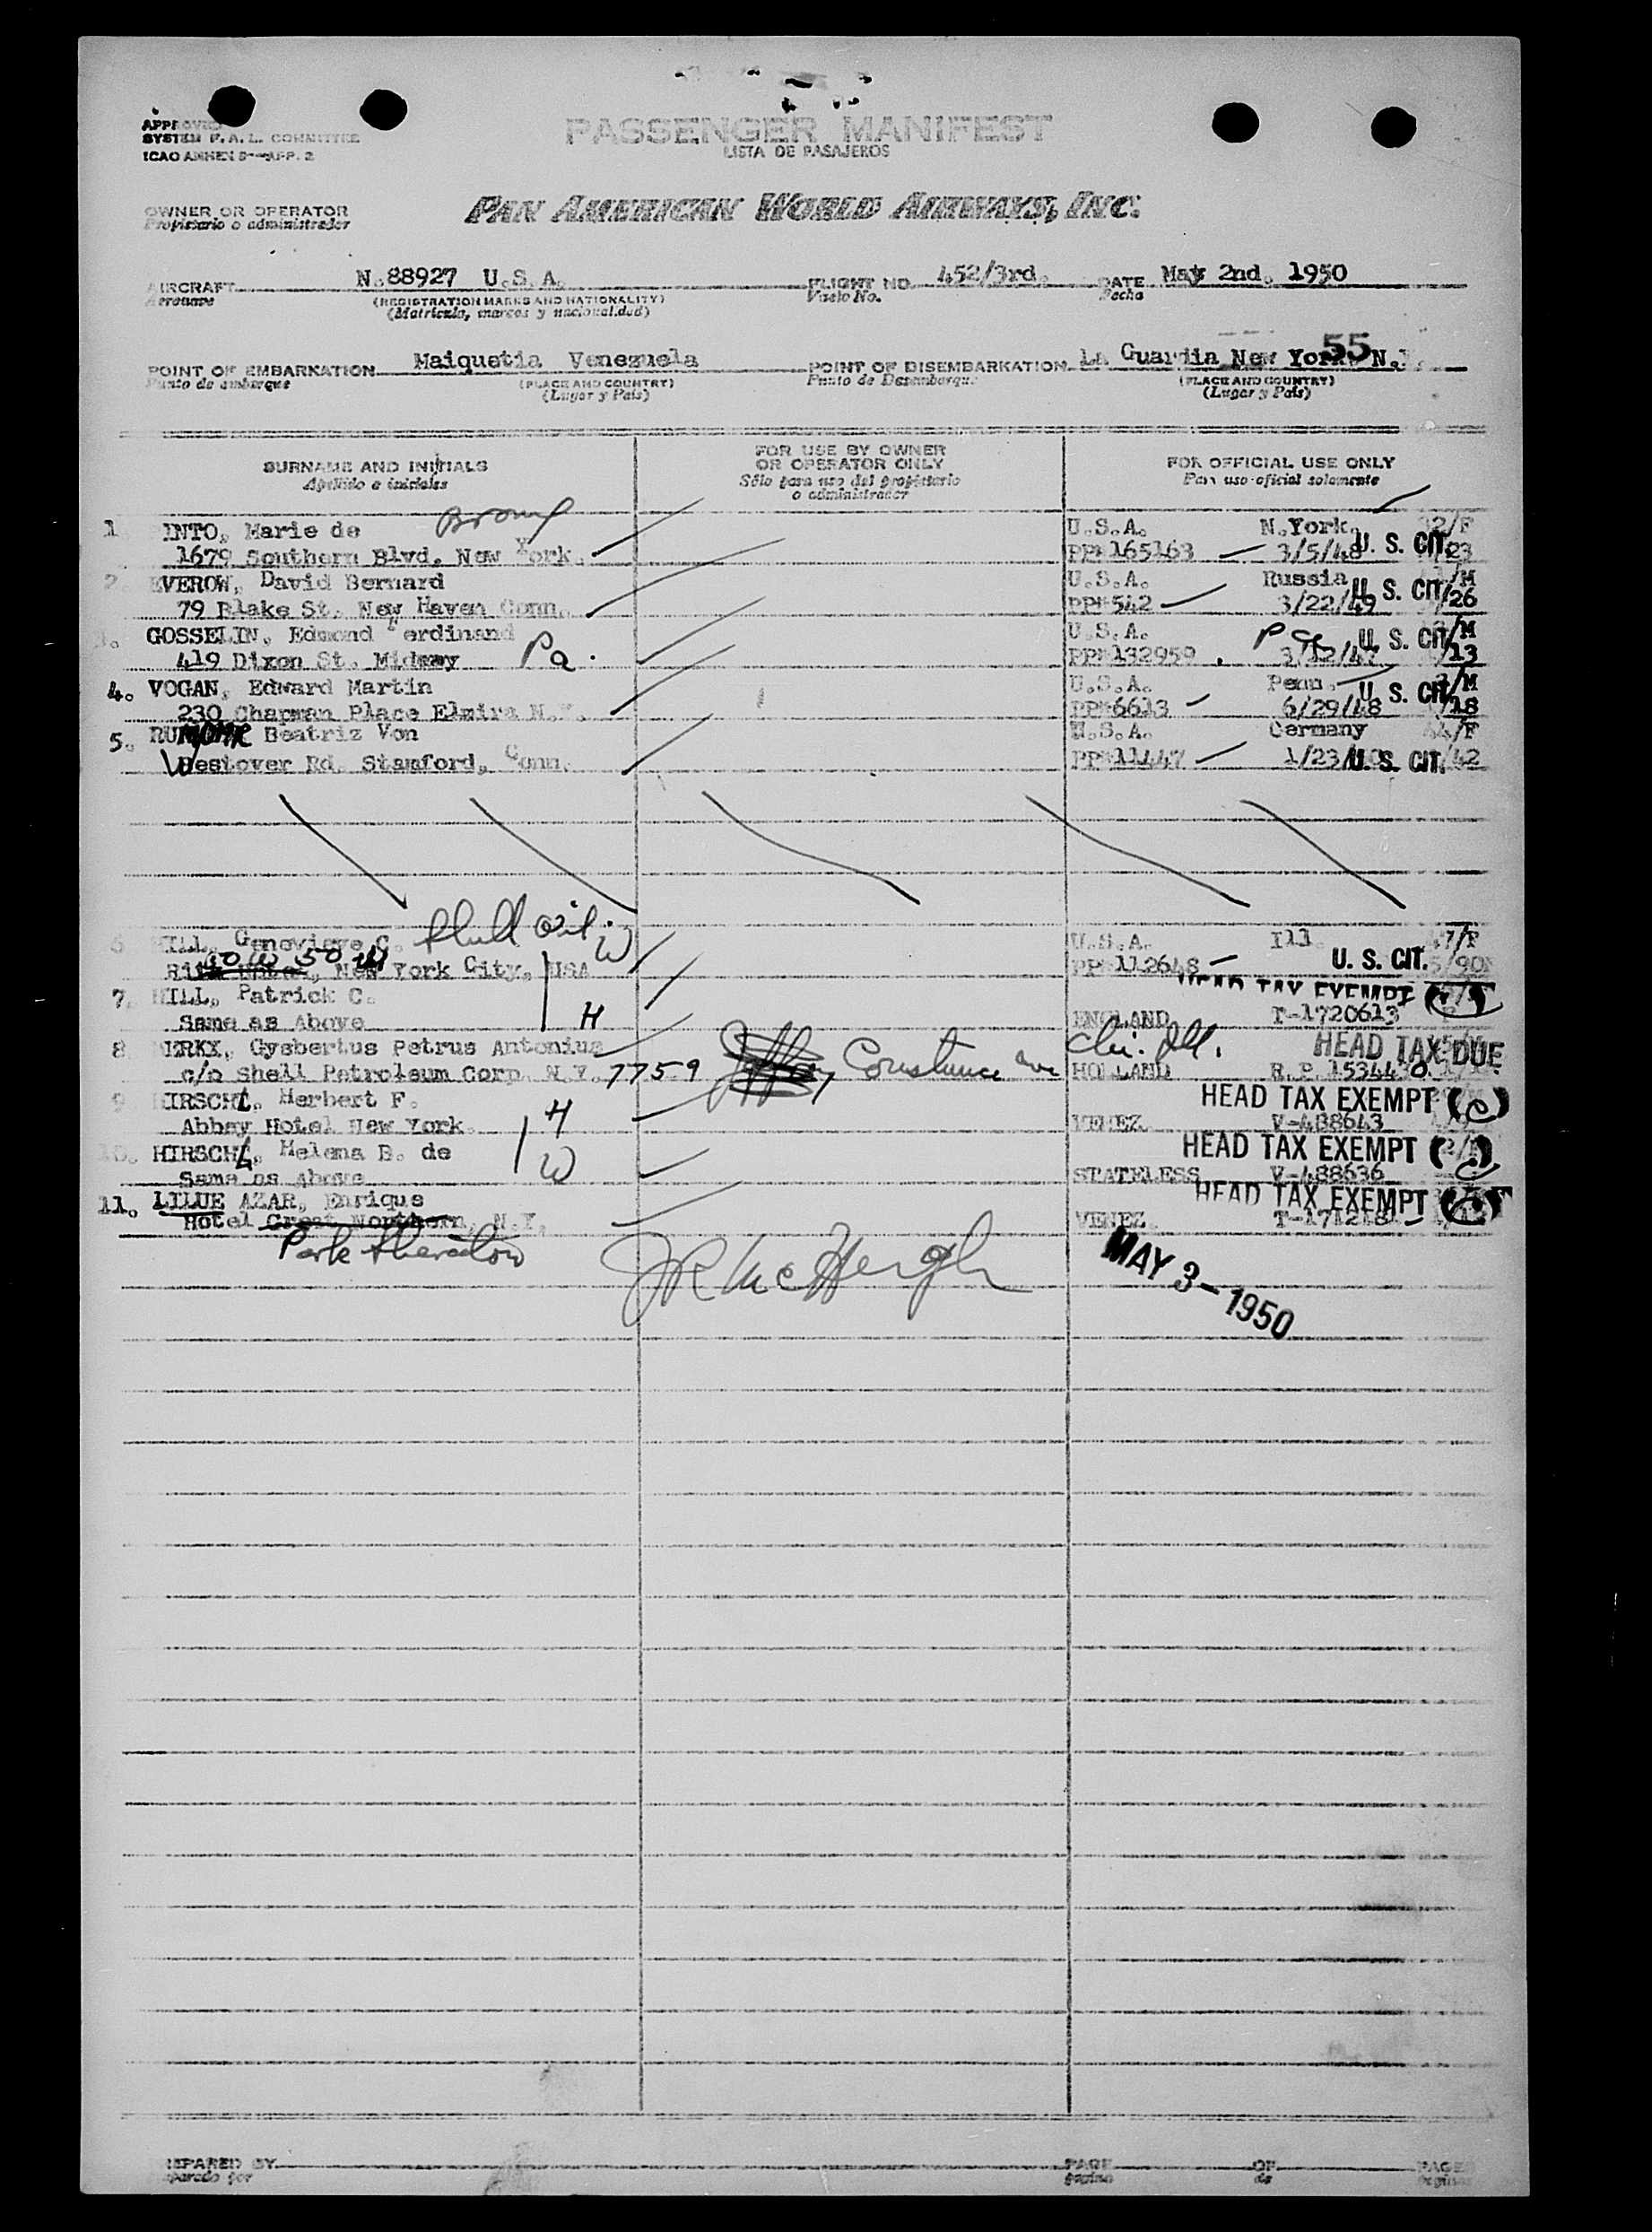 APPROVED
SYSTEM F.A.L. COMMITTEE
ICAO ANNEX 9—APP. 2
PASSENGER MANIFEST
LISTA DE PASAJEROS
OWNER OR OPERATOR
Propietario o administrador
PAN AMERICAN WORLD AIRWAYS, INC.
AIRCRAFT N.88927 U.S.A.
Aeronave
(REGISTRATION MARKS AND NATIONALITY)
(Matrícula, marcas y nacionalidad)
FLIGHT NO. 452/3rd.
Vuelo No.
DATE May 2nd. 1950
Fecha
55
POINT OF EMBARKATION Maiquetia Venezuela
Punto de embarque
(PLACE AND COUNTRY)
(Lugar y País)
POINT OF DISEMBARKATION La Guardia New York N.Y.
Punto de Desembarque
(PLACE AND COUNTRY)
(Lugar y País)
SURNAME AND INITIALS
Apellido e iniciales
FOR USE BY OWNER
OR OPERATOR ONLY
Sólo para uso del propietario
o administrador
FOR OFFICIAL USE ONLY
Para uso oficial solamente
1 INTO, Marie de Bronx U.S.A. N.York. 32/F
1679 Southern Blvd. New York. PP#165163 3/5/48 U. S. CIT. 23
2. EVEROW, David Bernard U.S.A. Russia /M
79 Blake St. New Haven Conn. PP#542 3/22/49 U. S. CIT. /26
3. GOSSELIN, Edmond Ferdinand U.S.A. Pa. U. S. CIT. /M
419 Dixon St. Midway Pa. PP#132959 3/12/47 /13
4. VOGAN, Edward Martin U.S.A. Penn. U. S. CIT. /M
230 Chapman Place Elmira N.Y. PP#6613 6/29/48 /18
5. RUMOHR Beatriz Von U.S.A. Germany 44/F
Westover Rd. Stamford, Conn. PP#11447 1/23/ U. S. CIT. /42
6 HILL, Genevieve C. Shell Oil. W U.S.A. Ill. 47/F
40 W 50 New York City, USA PP#112648 U. S. CIT. 5/90
7. HILL, Patrick C. HEAD TAX EXEMPT
Same as Above H ENGLAND T-1720613
8 MERKX, Gysbertus Petrus Antonius HEAD TAX DUE
c/o Shell Petroleum Corp. N.Y. 7759 Constance Ave Chi. Ill. HOLLAND R.P. 1534430
9 HIRSCHL, Herbert F. H HEAD TAX EXEMPT (C)
Abbey Hotel New York VENEZ. V-488643
10. HIRSCHL, Helena B. de W HEAD TAX EXEMPT
Same as Above STATELESS V-488636
11. LILUE AZAR, Enrique HEAD TAX EXEMPT
Hotel Great Northern, N.Y. VENEZ.
Park Sheraton
JR McHergh
MAY 3-1950
PREPARED BY
Preparado por
PAGE OF PAGES
página de páginas